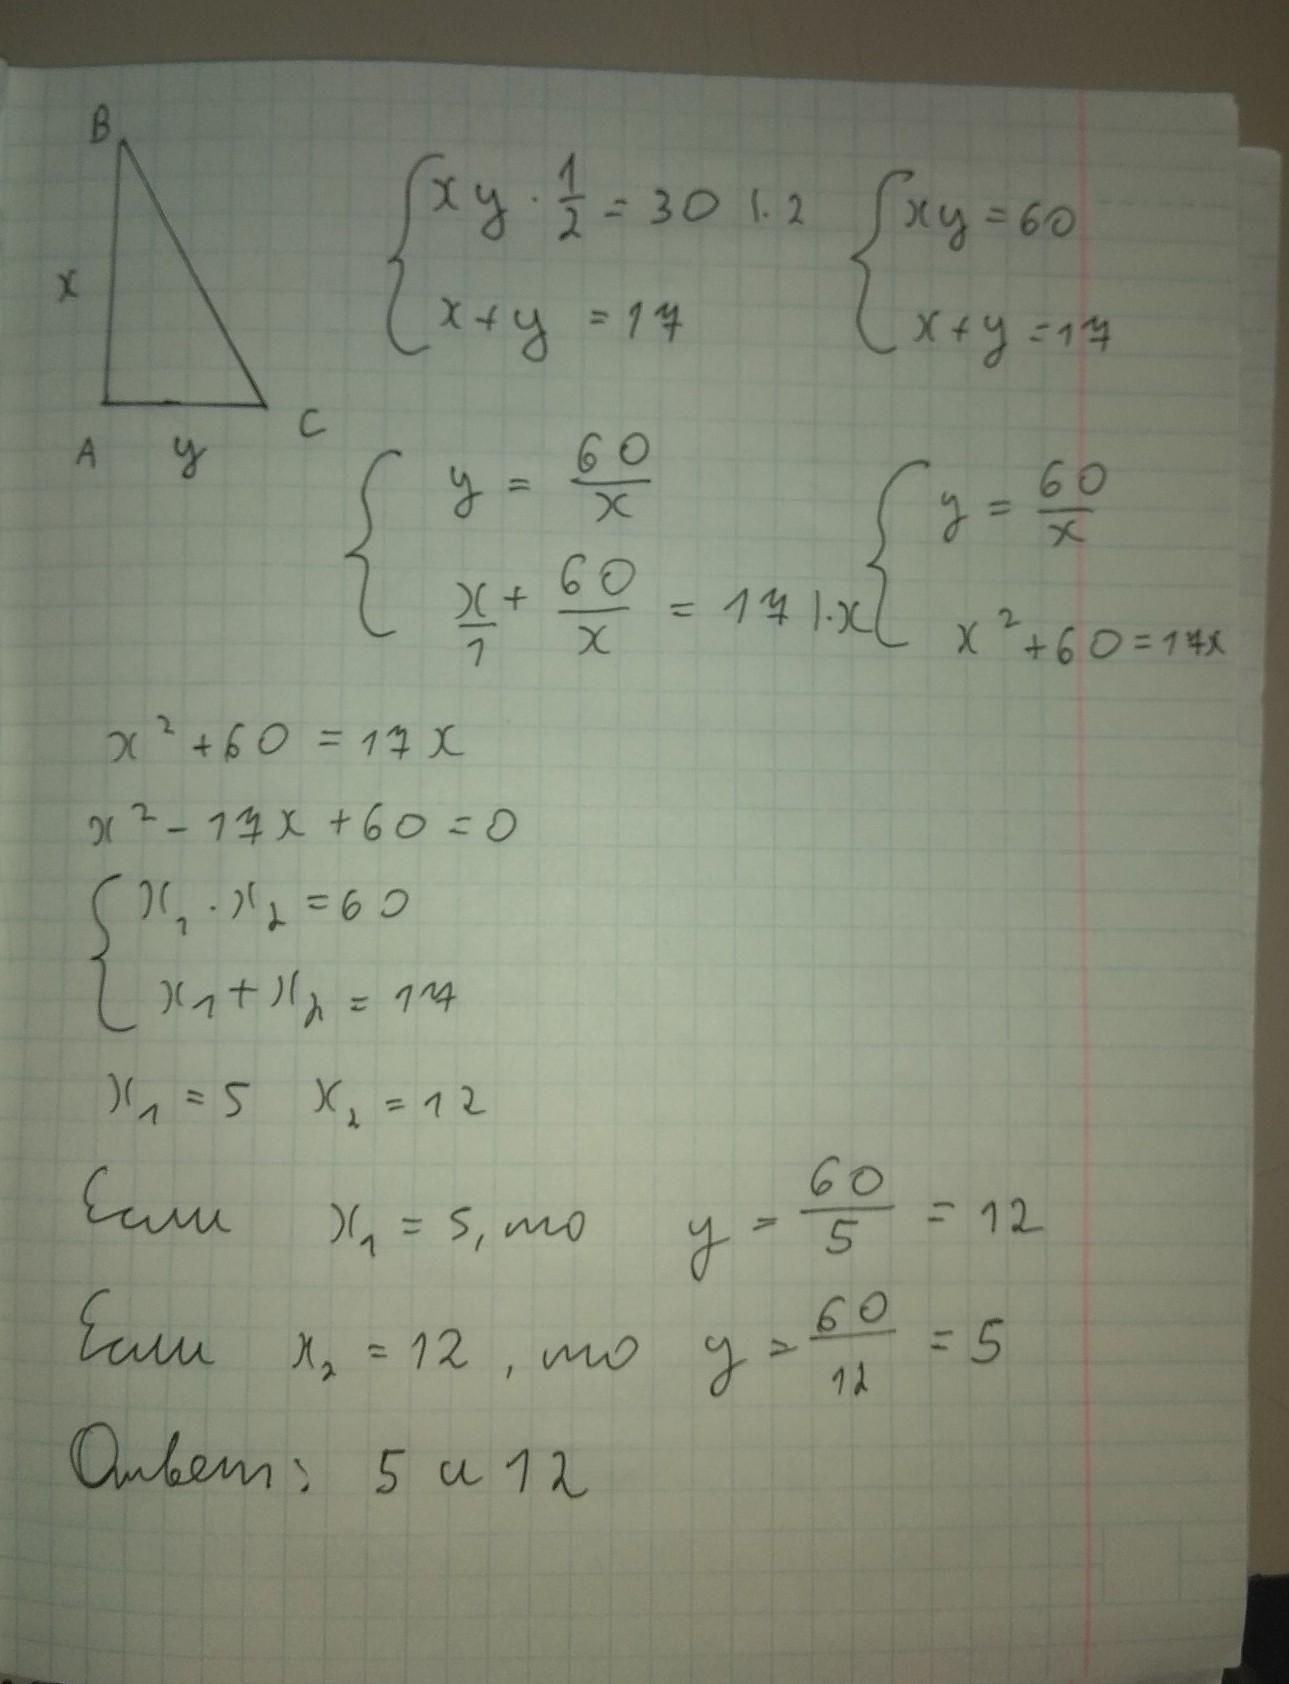 B
x
A y C
{ xy · 1/2 = 30 |·2 { xy = 60
x + y = 17 x + y = 17
{ y = 60/x { y = 60/x
x/1 + 60/x = 17 |·x x² + 60 = 17x
x² + 60 = 17x
x² - 17x + 60 = 0
{ x₁ · x₂ = 60
x₁ + x₂ = 17
x₁ = 5 x₂ = 12
Если x₁ = 5, то y = 60/5 = 12
Если x₂ = 12, то y = 60/12 = 5
Ответ: 5 и 12